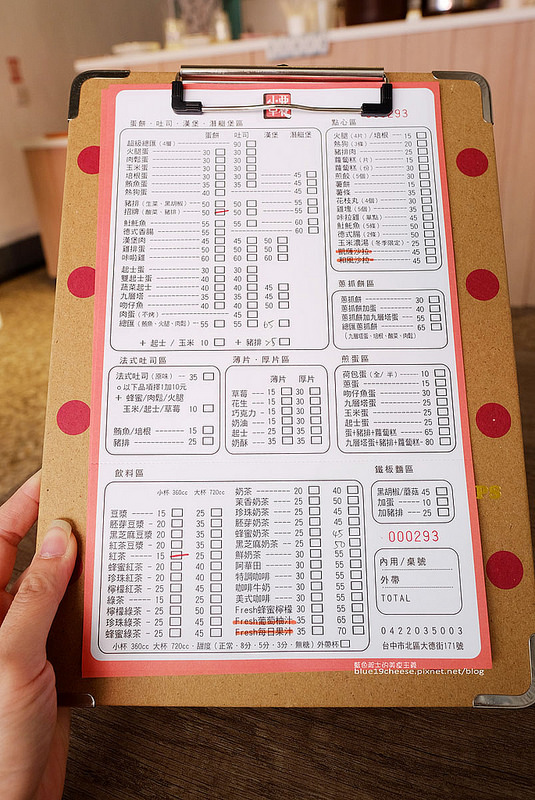 000293
蛋餅、吐司、漢堡、潛艇堡區
蛋餅 吐司 漢堡 潛艇堡
超級總匯(4層) 90
火腿蛋 30 30
肉鬆蛋 30 30
玉米蛋 30 30
培根蛋 30 30 45
鮪魚蛋 35 30 45
熱狗蛋 40 45
豬排(生菜、黑胡椒) 50 50 55
招牌(酸菜、豬排) 50 50 55
魠魠魚 55 55 60
德式香腸 60
漢堡肉 45 45 50
雞排蛋 50 50 50
咔啦雞 60 60 60
起士蛋 30 30
雙起士蛋 40 40
蔬菜起士 40 40 45
九層塔 35 35 40
吻仔魚 40 40 50
肉蛋(不烤) 45
總匯(鮪魚、火腿、肉鬆) 55 55 65
+ 起士 / 玉米 10 + 豬排 25
點心區
火腿(4片)/培根 15
熱狗(3條) 20
豬排肉 25
蘿蔔糕(片) 15
蘿蔔糕(份) 30
煎餃(5個) 30
薯餅 15
薯條 35
花枝丸(4個) 30
雞塊(5個) 35
咔拉雞(單點) 45
魠魠魚(5條) 50
德式腸(2條) 50
玉米濃湯(冬季限定) 25
凱薩沙拉 45
和風沙拉 45
蔥抓餅區
蔥抓餅 30
蔥抓餅加蛋 40
蔥抓餅加九層塔蛋 55
總匯蔥抓餅 65
(九層塔蛋、培根、酸菜、肉鬆)
法式吐司區
法式吐司(原味) 35
o以下品項擇1加10元
+ 蜂蜜/肉鬆/火腿
玉米/起士/草莓 10
鮪魚/培根 15
豬排 25
薄片、厚片區
薄片 厚片
草莓 15 30
花生 15 30
巧克力 15 30
奶油 15 30
起士 25 35
奶酥 25 35
煎蛋區
荷包蛋(全/半) 10
蔥蛋 15
吻仔魚蛋 30
九層塔蛋 25
玉米蛋 25
起士蛋 25
蛋+豬排+蘿蔔糕 65
九層塔蛋+豬排+蘿蔔糕 80
飲料區
小杯 360cc 大杯 720cc
豆漿 15 25
胚芽豆漿 20 35
黑芝麻豆漿 20 35
紅茶豆漿 20 35
紅茶 15 25
蜂蜜紅茶 20 40
珍珠紅茶 20 40
檸檬紅茶 25 45
綠茶 15 25
檸檬綠茶 25 50
珍珠綠茶 25 45
蜂蜜綠茶 25 45
奶茶 20 40
茉香奶茶 25 50
珍珠奶茶 25 45
胚芽奶茶 25 45
蜂蜜奶茶 25 45
黑芝麻奶茶 25 50
鮮奶茶 30 55
阿華田 30 55
特調咖啡 30 55
咖啡牛奶 30 55
美式咖啡 30 55
Fresh蜂蜜檸檬 30 55
Fresh葡萄柚汁 35 65
Fresh每日果汁 35 70
小杯 360cc 大杯 720cc、甜度(正常、8分、5分、3分、無糖)外帶杯
鐵板麵區
黑胡椒/蘑菇 45
加蛋 10
加豬排 25
000293
內用/桌號
外帶
TOTAL
0422035003
台中市北區大德街171號
藍色起士的美食主義
blue19cheese.pixnet.net/blog